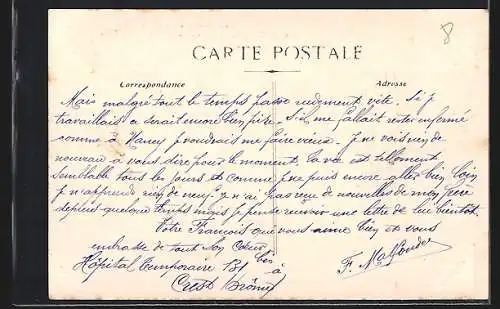 8
CARTE POSTALE
Correspondance
Adresse
Mais malgré tout le temps passe rudement vite. Si j
travaillais a serait encore bien pire. S'il me fallait rester enfermé
comme à Nancy je voudrais me faire vieux. Je ne vois rien de
nouveau à vous dire pour le moment. La vie est tellement
semblable tous les jours et comme je ne puis encore aller bien loin
je n'apprends rien de neuf. Je n'ai pas reçu de nouvelles de mon frère
depuis quelque temps mais je pense recevoir une lettre de lui bientôt.
Votre François que vous aime bien et vous
embrasse de tout son cœur
Hôpital Temporaire
à
Crest Drôme
F.